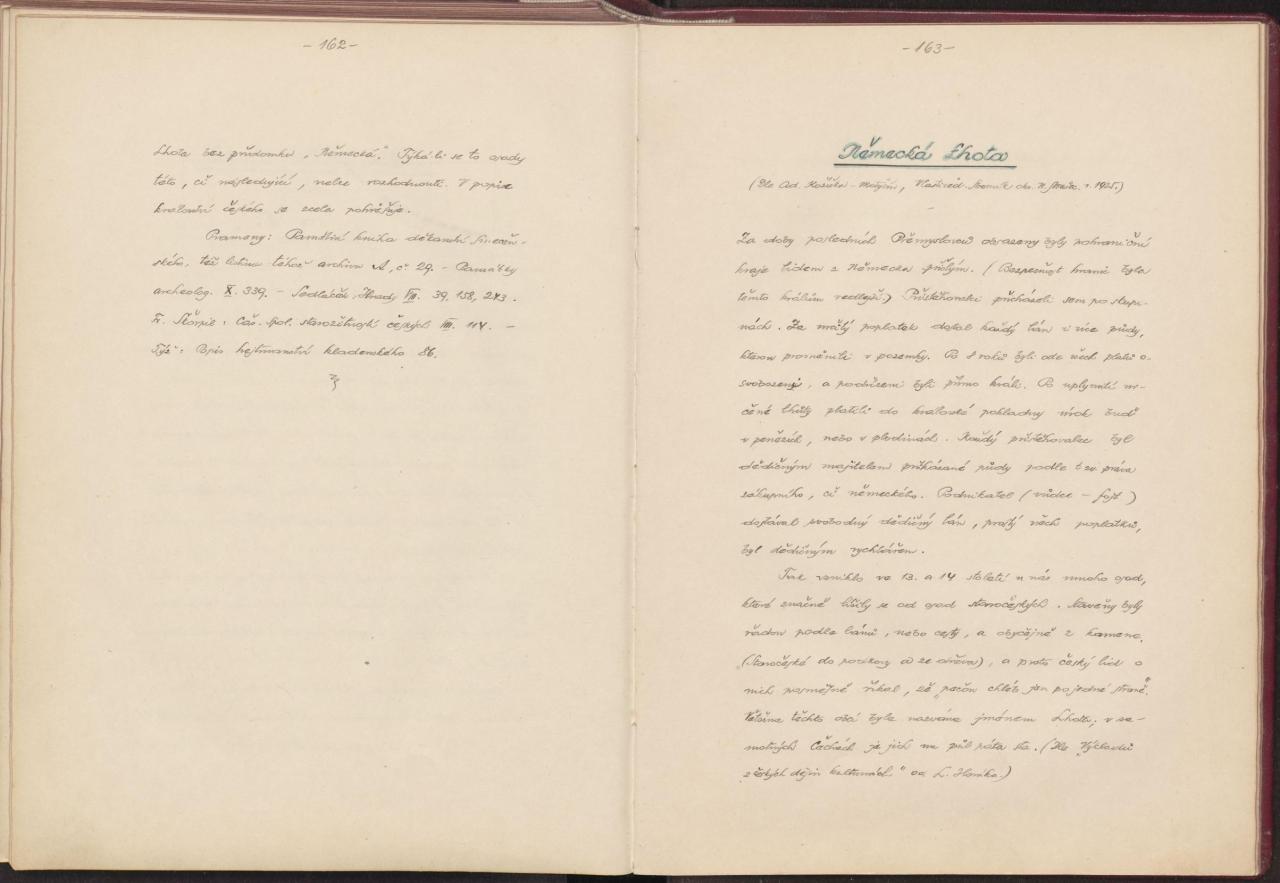 - 162 -
Lhota bez přídomku „Německá". Týká-li se to osady
této, či následující, nelze rozhodnouti. V popise
království českého se zcela pohřešuje.
Prameny: Pamětní kniha děkanství Smečen-
ského, též listina téhož archivu A, č. 29. - Památky
archeolog. X. 339. - Sedláček, Hrady VIII. 39, 158, 243.
Fr. Škorpil: Čas. spol. starožitností českých III. 114. -
Týž: Popis hejtmanství kladenského 86.
- 163 -
Německá Lhota
(Dle Ad. , Vlastivěd. Sborník r. 1925.)
Za doby posledních Přemyslovců osazeny byly pohraniční
kraje lidem z Německa přišlým. (Bezpečnost hranic byla
těmto králům vedlejší.) Přistěhovalci přicházeli sem po skupi-
nách. Za malý poplatek dostal každý lán i více půdy,
kterou proměnili v pozemky. Po 8 roků byli ode všech platů o-
svobozeni, a podřízeni byli přímo králi. Po uplynutí ur-
čené lhůty platili do královské pokladny úrok buď
v penězích, nebo v plodinách. Každý přistěhovalec byl
dědičným majitelem přikázané půdy podle t. zv. práva
zákupního, či německého. Podnikatel (vůdce - fojt)
dostával svobodný dědičný lán, prostý všech poplatků,
byl dědičným rychtářem.
Tak vzniklo ve 13. a 14 století u nás mnoho osad,
které značně lišily se od osad staročeských. Stavěny byly
řadou podle lánů, nebo cesty, a obyčejně z kamene.
(Staročeské do podkovy a ze dřeva), a proto český lid o
nich posměšně říkal, že „pečou chléb jen po jedné straně".
Většina těchto osad byla nazvána jménem Lhota; v sa-
motných Čechách je jich na půl páta sta. (Dle „Výkladů
z českých dějin kulturních" od L. )